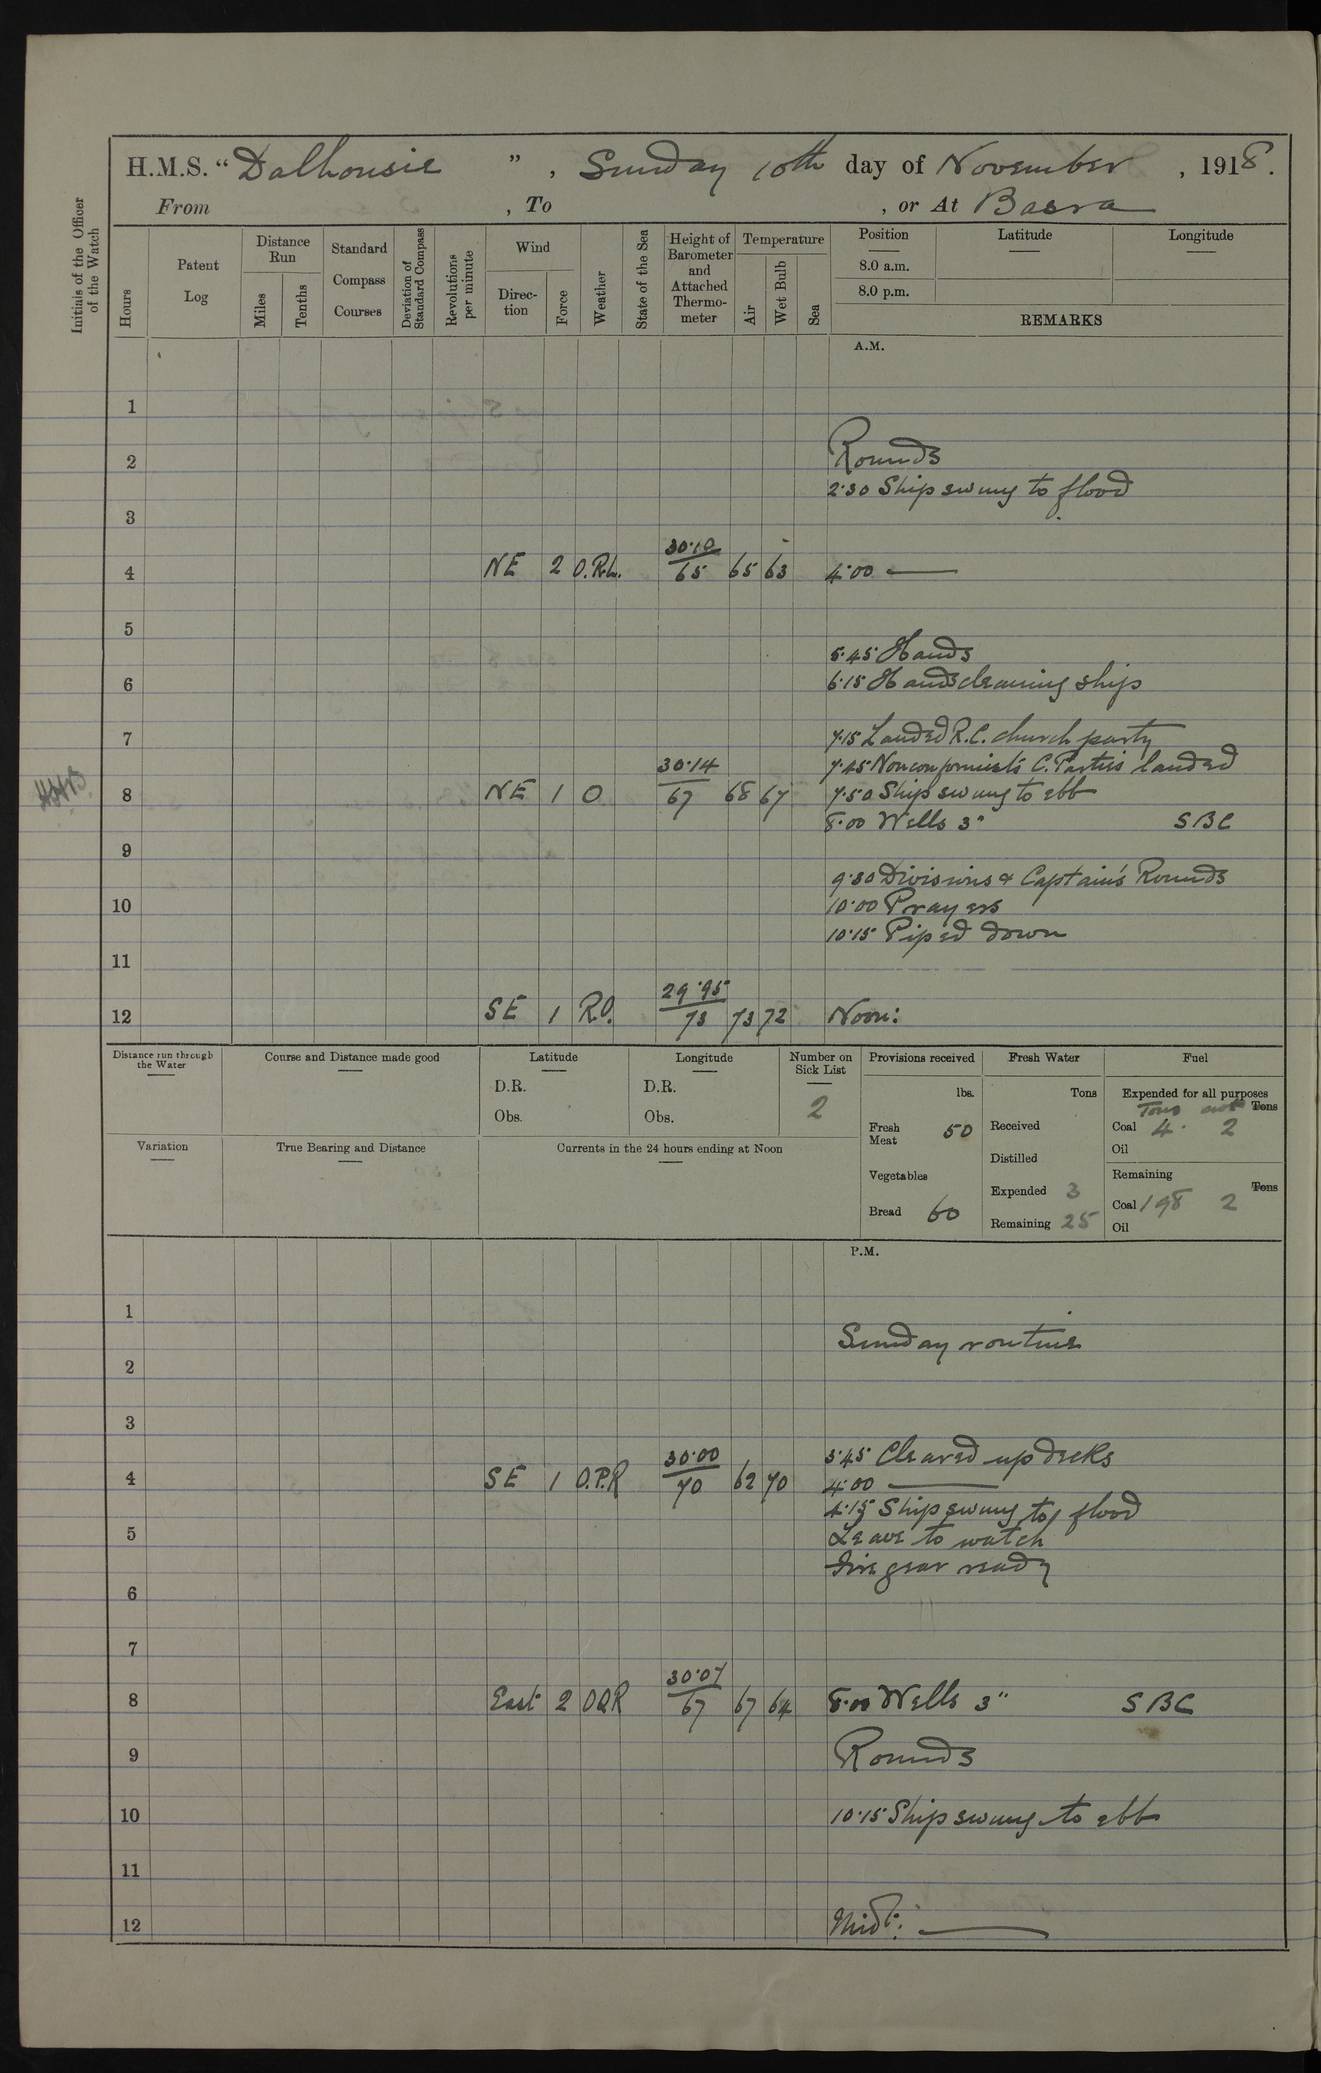 H.M.S. “Dalhousie”, Sunday 10th day of November, 1918.
From , To , or At Basra
Initials of the Officer of the Watch
Hours
Patent Log
Distance Run
Miles
Tenths
Standard Compass Courses
Deviation of Standard Compass
Revolutions per minute
Wind
Direction
Force
Weather
State of the Sea
Height of Barometer and Attached Thermometer
Temperature
Air
Wet Bulb
Sea
Position
8.0 a.m.
8.0 p.m.
Latitude
Longitude
REMARKS
A.M.
1
2 Rounds
2.30 Ship swung to flood
3
4 NE 2 O.R.L. 30.10/65 65 63 4.00 ——
5
5.45 Hands
6 6.15 Hands cleaning ship
7 7.15 Landed R.C. church party
7.45 Nonconformist's C. Parties landed
8 NE 1 O 30.14/67 68 67 7.50 Ship swung to ebb
8.00 Wells 3" SBC
9
9.30 Divisions & Captain's Rounds
10 10.00 Prayers
10.15 Piped down
11
12 SE 1 R.O. 29.95/73 73 72 Noon:
Distance run through the Water
Course and Distance made good
Latitude
D.R.
Obs.
Longitude
D.R.
Obs.
Number on Sick List
2
Provisions received
lbs.
Fresh Meat 50
Vegetables
Bread 60
Fresh Water
Tons
Received
Distilled
Expended 3
Remaining 25
Fuel
Expended for all purposes
Tons cwt Tons
Coal 4. 2
Oil
Remaining
Tons
Coal 198 2
Oil
Variation
True Bearing and Distance
Currents in the 24 hours ending at Noon
P.M.
1
Sunday routine
2
3
3.45 Cleared up decks
4 SE 1 O.P.R 30.00/70 62 70 4.00 ——
4.15 Ship swung to flood
5 Leave to watch
Fire gear ready
6
7
8 East 2 OQR 30.07/67 67 64 8.00 Wells 3" SBC
9 Rounds
10 10.15 Ship swung to ebb
11
12 Midt: ——